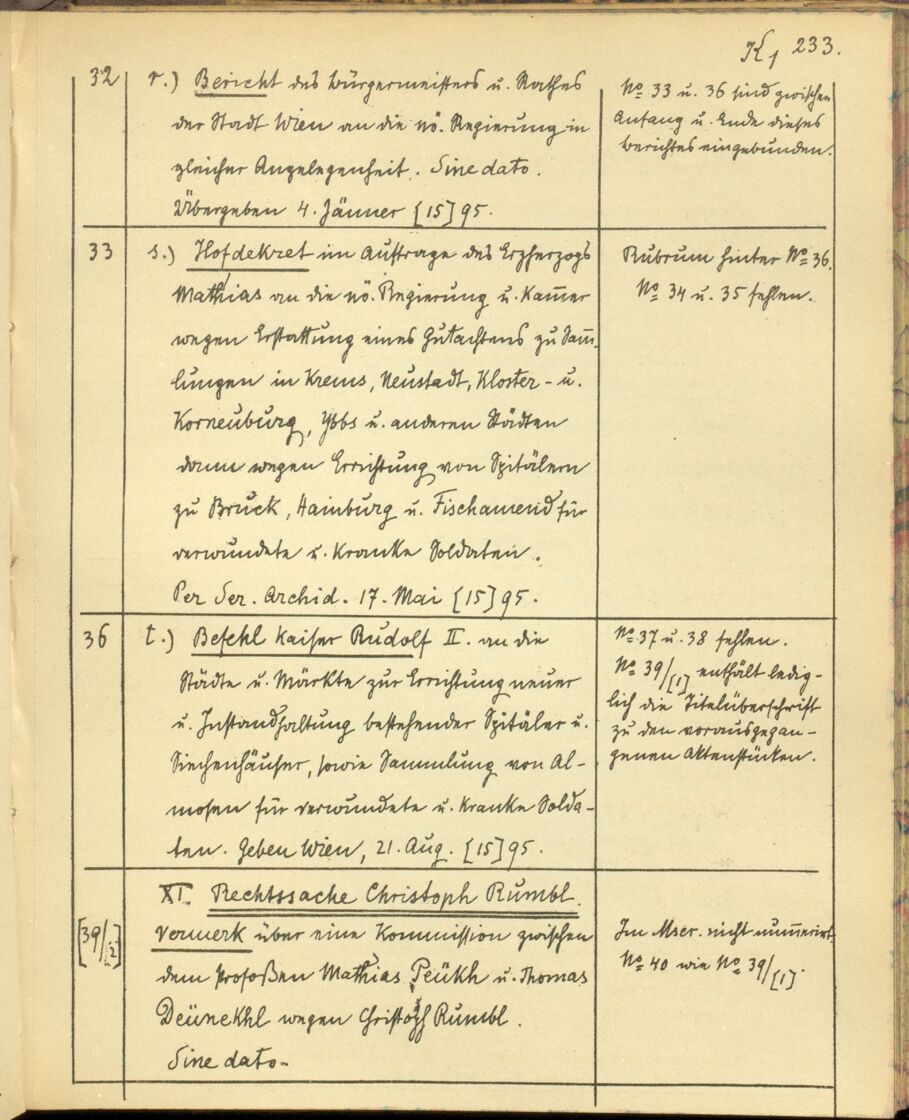 K, 233.
32 r.) Bericht des Bürgermeisters u. Rathes
der Stadt Wien an die nö. Regierung in
gleicher Angelegenheit. Sine dato.
Übergeben 4. Jänner [15]95.
No 33 u. 36 sind zwischen
Anfang u. Ende dieses
Berichtes eingebunden.
33 s.) Hofdekret im Auftrage des Erzherzogs
Mathias an die nö. Regierung u. Kam̅er
wegen Erstattung eines Gutachtens zu Sam̅-
lungen in Krems, Neustadt, Kloster- u.
Korneuburg, Ybbs u. anderen Städten
dann wegen Errichtung von Spitälern
zu Bruck, Hainburg u. Fischamend für
verwundete u. kranke Soldaten.
Per Ser. Archid. 17. Mai [15]95.
Rubrum hinter No 36.
No 34 u. 35 fehlen.
36 t.) Befehl Kaiser Rudolf II. an die
Städte u. Märkte zur Errichtung neuer
u. Instandhaltung bestehender Spitäler u.
Siechenhäuser, sowie Sammlung von Al-
mosen für verwundete u. kranke Solda-
ten. Geben Wien, 21. Aug. [15]95.
No 37 u. 38 fehlen.
No 39/[1] enthält ledig-
lich die Titelüberschrift
zu den vorausgegan-
genen Aktenstücken.
XI. Rechtssache Christoph Rumbl.
[39/2] Vermerk über eine Kommission zwischen
dem Profoßen Mathias Peükh u. Thomas
Deünekhl wegen Christoph Rumbl.
Sine dato.
Im Mscr. nicht num̅eriert
No 40 wie No 39/[1].